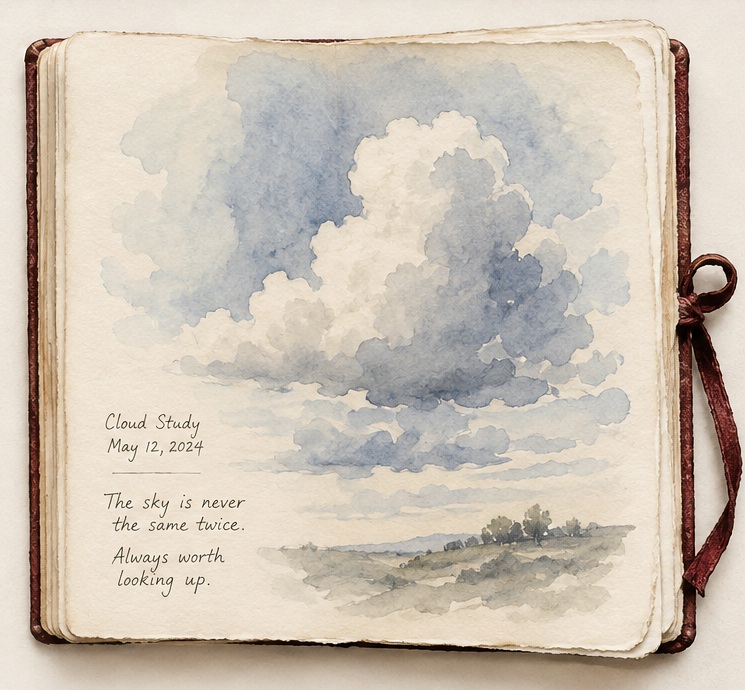 Cloud Study
May 12, 2024
The sky is never
the same twice.
Always worth
looking up.